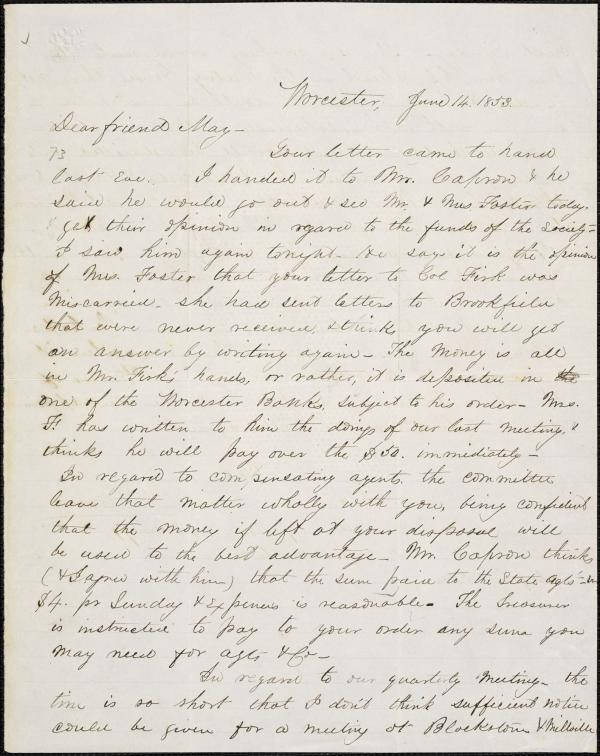 Worcester, June 14. 1853.
Dear friend May -
73 Your letter came to hand
last Eve. I handed it to Mr. Capron & he
said he would go out & see Mr. & Mrs. Foster today.
& get their opinion in regard to the funds of the Society -
I saw him again tonight - He says it is the opinion
of Mrs. Foster that your letter to Col Fisk was
Miscarried - she had sent letters to Brookfield
that were never received, & thinks you will get
an answer by writing again - The Money is all
in Mr. Fisk's hands, or rather, it is deposited in the
one of the Worcester Banks, subject to his order - Mrs.
F. has written to him the doings of our last meeting, &
thinks he will pay over the $50. immediately -
In regard to compensating agents, the committee
leave that matter wholly with you, being confident
that the money if left at your disposal will
be used to the best advantage - Mr. Capron thinks
(& I agree with him) that the sum paid to the State Agts -
$4. pr Sunday & Expenses is reasonable - The Treasurer
is instructed to pay to your order any sum you
may need for agts &c -
In regard to our quarterly Meeting - the
time is so short that I don't think sufficient notice
could be given for a meeting at Blackstone & Millville